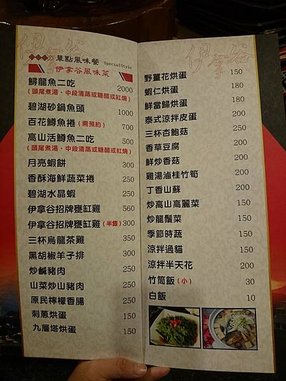 單點風味餐
Special Style
伊拿谷風味菜
鱘龍魚二吃 2000
(頭尾煮湯,中段清蒸或糖醋或紅燒)
碧湖砂鍋魚頭 1000
百花鱒魚捲(需預約) 700
高山活鱒魚二吃 500
(頭尾煮湯,中段清蒸或糖醋或紅燒)
月亮蝦餅 300
香酥海鮮蔬菜捲 250
碧湖水晶蝦 250
伊拿谷招牌甕缸雞 560
伊拿谷招牌甕缸雞(半雞) 300
三杯烏龍茶雞 350
黑胡椒羊子排 300
炒鹹豬肉 250
山菜炒山豬肉 250
原民檸檬香腸 200
刺蔥烘蛋 150
九層塔烘蛋 150
野薑花烘蛋 150
蝦仁烘蛋 180
鮮當歸烘蛋 180
泰式涼拌皮蛋 200
三杯杏鮑菇 200
香草豆腐 200
鮮炒香菇 250
雞湯滷桂竹筍 200
丁香山蘇 200
炒高山高麗菜 150
炒龍鬚菜 150
季節時蔬 150
涼拌過貓 150
涼拌半天花 200
竹筒飯(小) 30
白飯 10